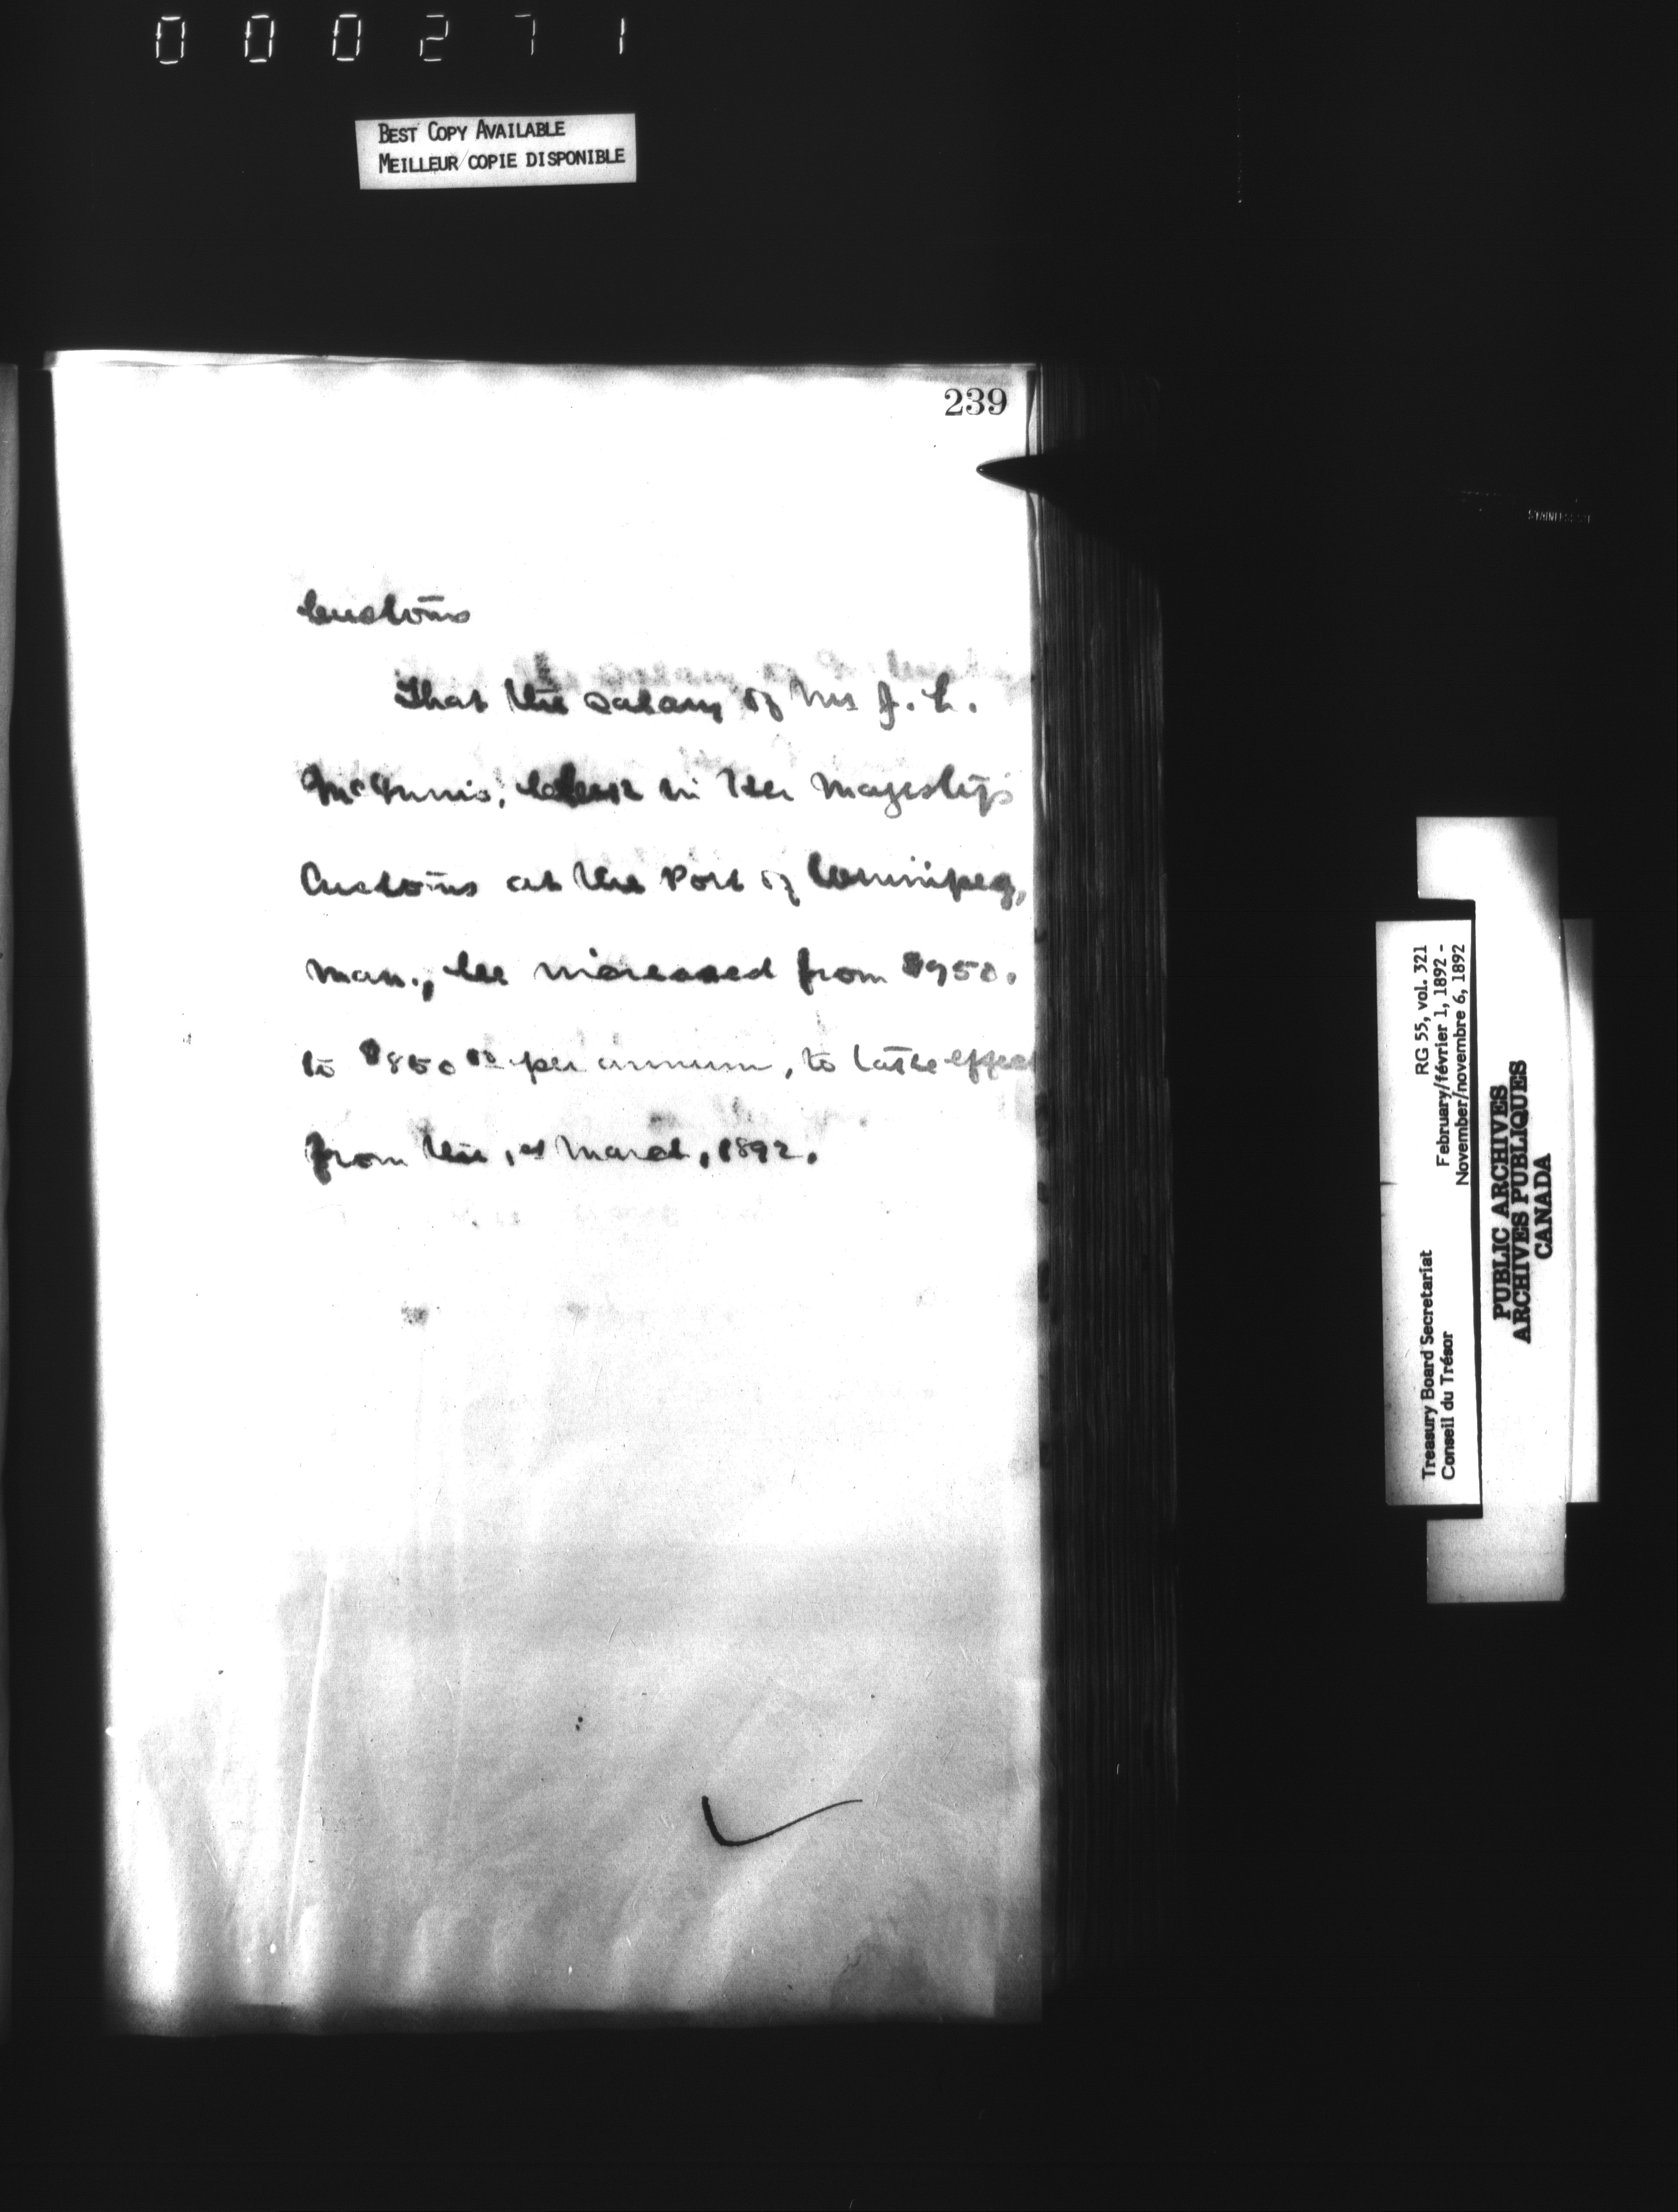 000271
BEST COPY AVAILABLE
MEILLEUR COPIE DISPONIBLE
239
Customs
That the salary of Mr J. L.
McGinnis, Clerk in Her Majesty's
Customs at the Port of Winnipeg,
Man., be increased from $950.
to $850 00 per annum, to take effect
from the 1st March, 1892.
RG 55, vol. 321
February/février 1, 1892 -
November/novembre 6, 1892
Treasury Board Secretariat
Conseil du Trésor
PUBLIC ARCHIVES
ARCHIVES PUBLIQUES
CANADA